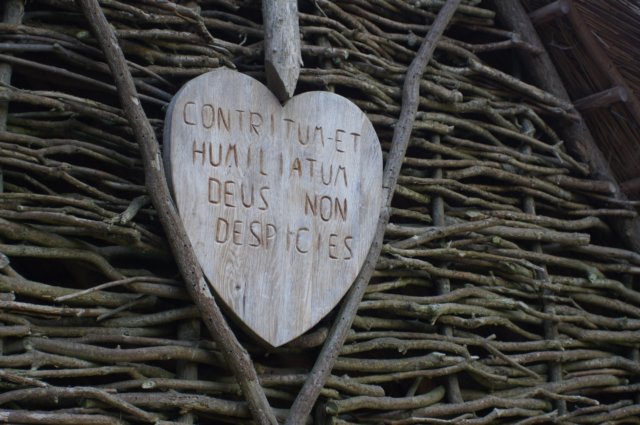 CONTRITUM-ET
HUMILIATUM
DEUS NON
DESPICIES